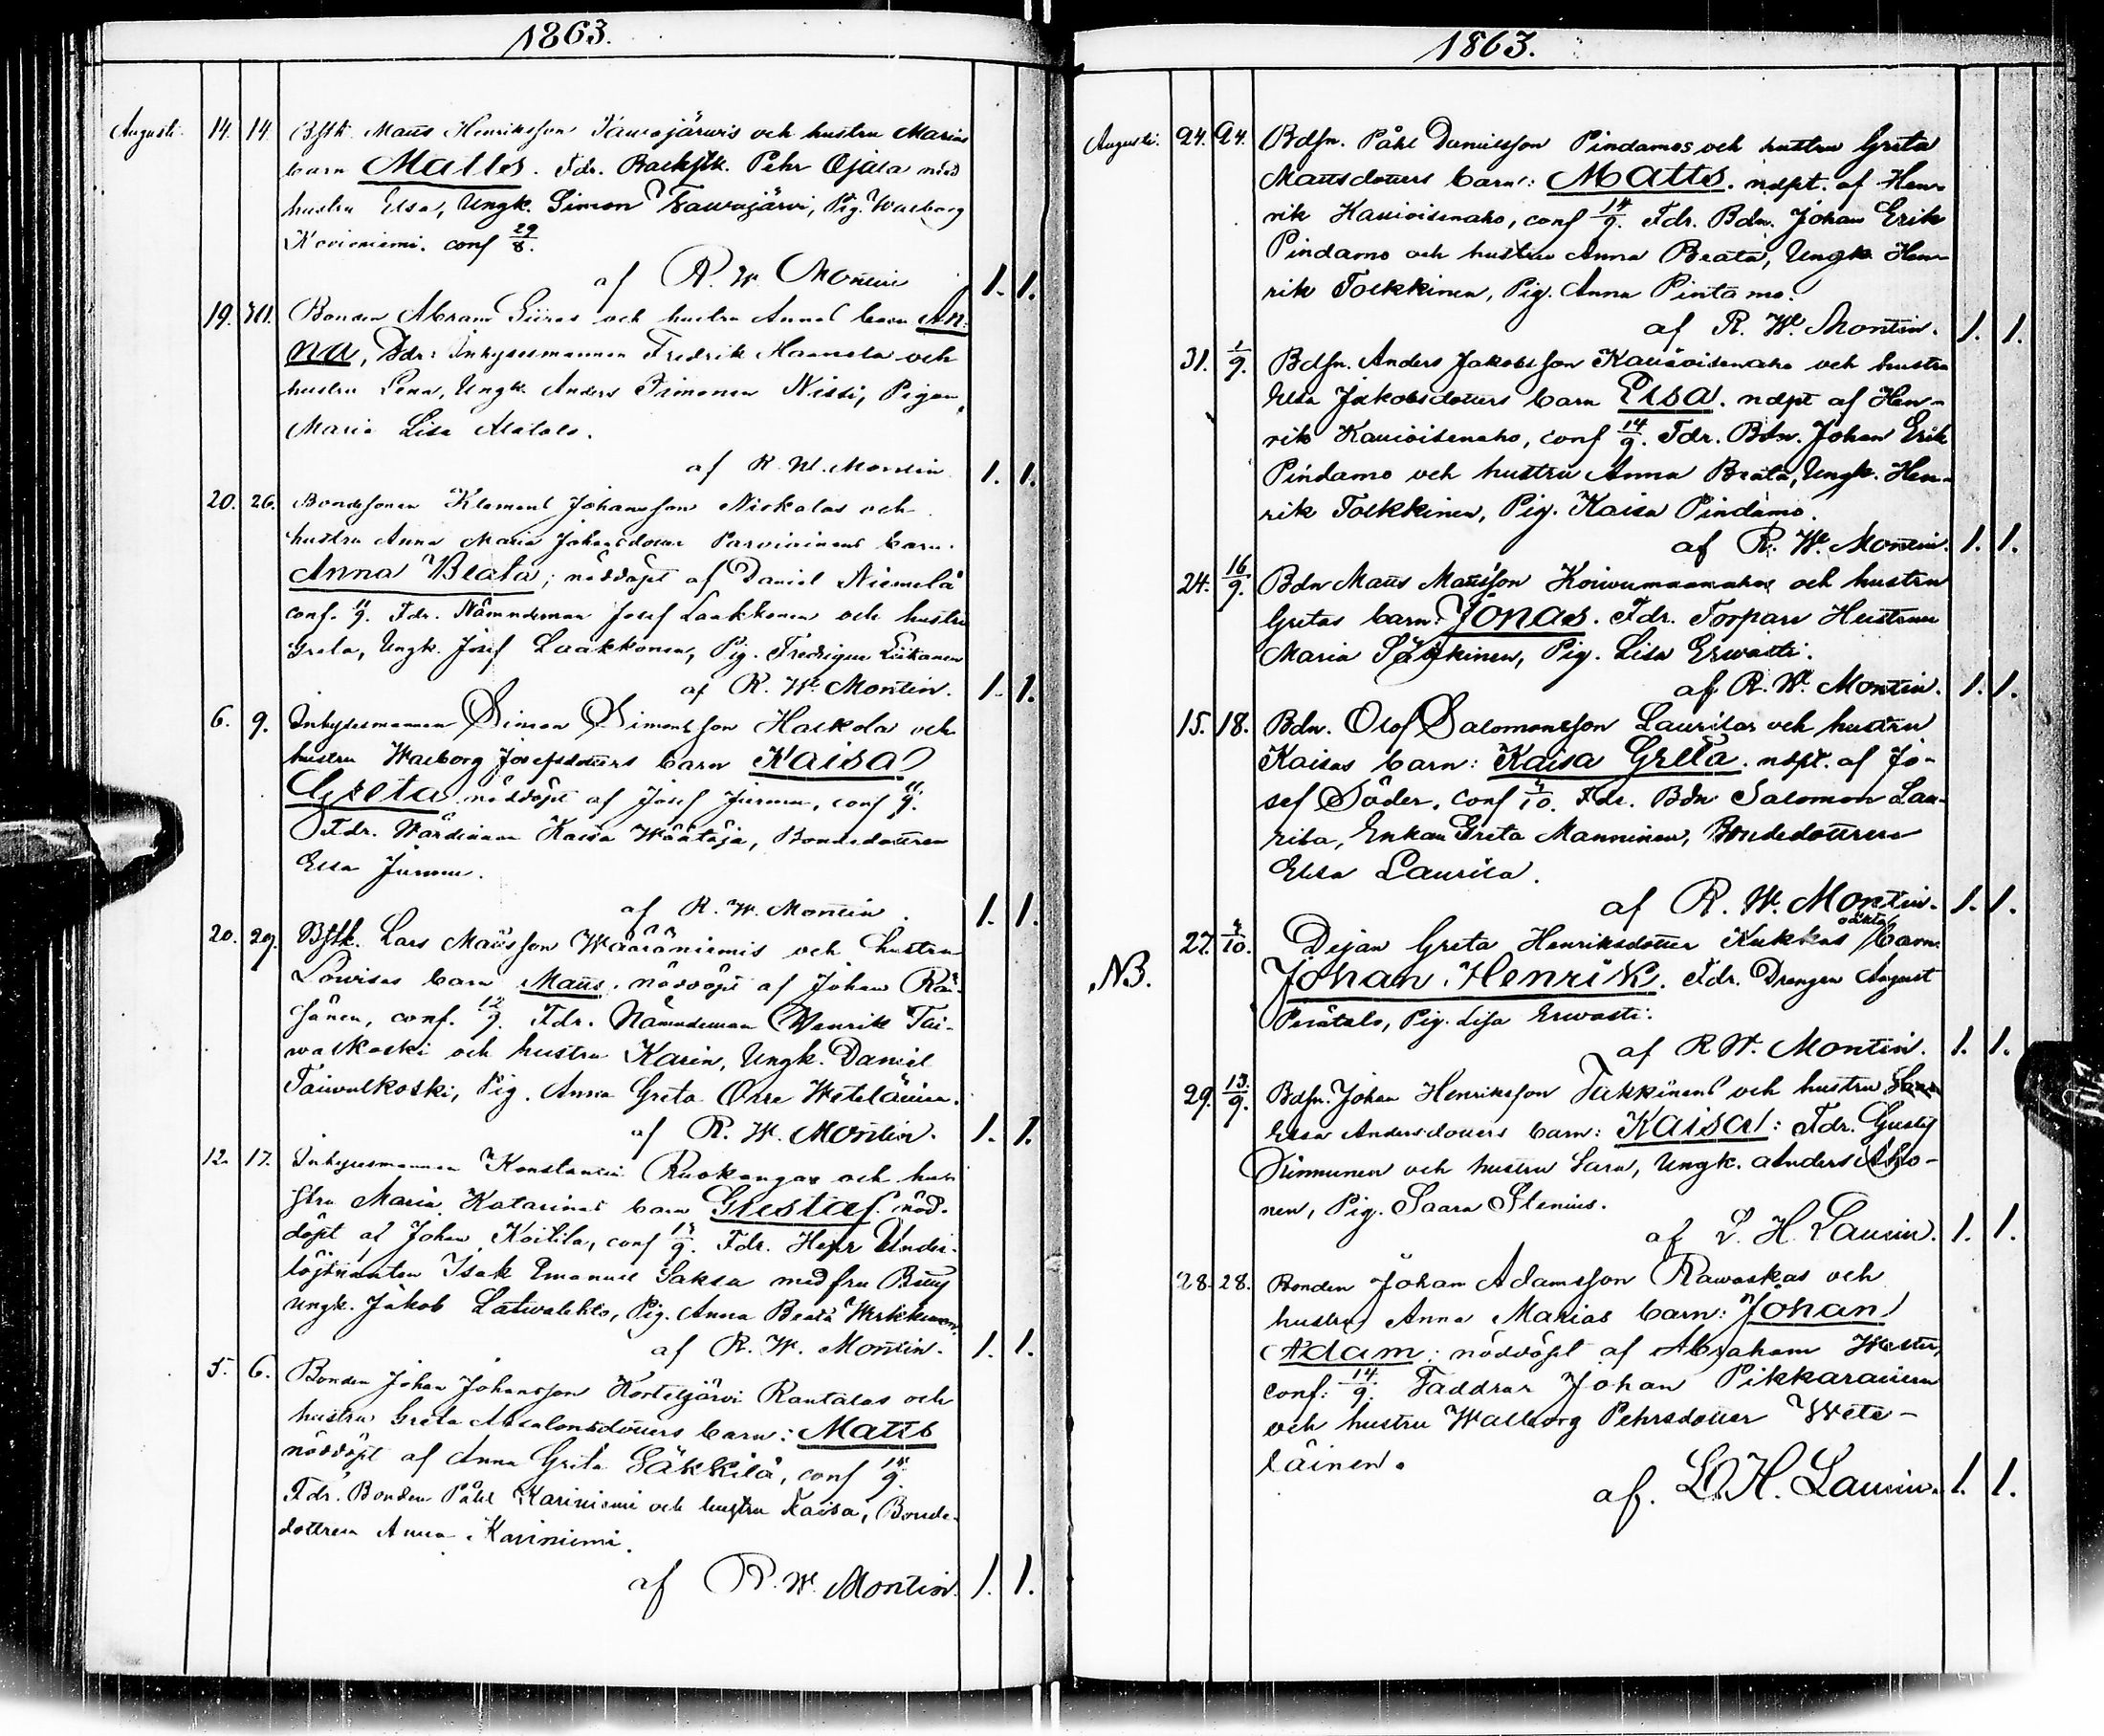 1863.
Augusti. 14. 14. Bstk. Matts Henriksson Tauvojärwis och hustru Marias
barn Matts. Fdr. Backstk. Pehr Ojala med
hustru Elsa, Ungk. Simon Tauvojärvi, Pig. Walborg
Koviniemi. conf 29/8.
af R. W. Montin 1. 1.
19. Bonden Abram Siiras och hustru Annas barn An-
na, Fdr: Inhysesmannen Fredrik Haamela och
hustru Lena, Ungk. Anders Timonen Nissi, Pigan
Maria Lisa Alatalo.
af R. W. Montin 1. 1.
20. 26. Bondesonen Klement Johansson Niskalas och
hustru Anna Maria Johansdotter Parviainens barn.
Anna Beata; nöddöpt af Daniel Niemelä
conf. 11/9. Fdr. Nämndeman Josef Laakkonen och hustru
Greta, Ungk. Josef Laakkonen, Pig. Fredrique Liikanen
af R. W. Montin. 1. 1.
6. 9. Inhysesmannen Simon Simonsson Halkola och
hustru Walborg Josefsdotters barn Kaisa
Greta nöddöpt af Josef Jurmu, conf 11/9.
Fdr. Wärdinnan Kaisa Määttäjä, Bondedottren
Elsa Jurmu.
af R. W. Montin. 1. 1.
20. 29. Bstk. Lars Mattsson Wääräniemis och hustru
Lovisas barn Matts, nöddöpt af Johan Rä-
sänen, conf. 12/9. Fdr. Nämndeman Henrik Tai-
walkoski och hustru Karin, Ungk. Daniel
Taiwalkoski, Pig. Anna Greta Orre Weteläinen.
af R. W. Montin. 1. 1.
12. 17. Inhysesmannen Konstantin Ruokangas och hu-
stru Maria Katarinas barn Gustaf. nöd-
döpt af Johan Koitila, conf 13/9. Fdr. Herr Under-
löjtnanten Isak Emanuel Saksa med fru
Ungk. Jakob Latvalehto, Pig. Anna Beata Werkkunen.
af R. W. Montin. 1. 1.
5. 6. Bonden Johan Johansson Kortetjärvi Rantalas och
hustru Greta Absalonsdotters barn: Matts
nöddöpt af Anna Greta Säkkilä, conf 14/9.
Fdr. Bonden Påhl Kariniemi och hustru Kaisa, Bonde-
dottren Anna Kariniemi.
af R. W. Montin. 1. 1.
1863.
Augusti. 24. 24. Bdsn. Påhl Danielsson Pindamos och hustru Greta
Mattsdotters barn: Matts. ndpt. af Hen-
rik Kauvoisenaho, conf 14/9. Fdr. Bdn. Johan Erik
Pindamo och hustru Anna Beata, Ungk. Hen-
rik Tolkkinen, Pig. Anna Pintamo.
af R. W. Montin. 1. 1.
31. 1/9. Bdsn. Anders Jakobsson Kauvoisenaho och hustru
Elsa Jakobsdotters barn Elsa. ndpt af Hen-
rik Kauvoisenaho, conf 14/9. Fdr. Bdn. Johan Erik
Pindamo och hustru Anna Beata, Ungk. Hen-
rik Tolkkinen, Pig. Kaisa Pindamo.
af R. W. Montin. 1. 1.
24. 16/9. Bdn Matts Mattsson Koivumaanahos och hustru
Gretas barn: Jonas. Fdr. Torpare Hustrun
Maria Särkinen, Pig. Lisa Erwasti.
af R. W. Montin. 1. 1.
15. 18. Bdn. Olof Salomonsson Laurilas och hustru
Kaisas barn: Kaisa Greta. ndpt. af Jo-
sef Söder, conf Fdr. Bdn Salomon Lau-
rila, Enkan Greta Manninen, Bondedottren
Elsa Laurila.
af R. W. Montin. 1. 1.
27. 4/10. Dejan Greta Henriksdotter Kukkas oäkta barn
NB. Johan Henrik. Fdr. Drengen August
Perätalo, Pig. Lisa Erwasti.
af R W. Montin. 1. 1.
29. 13/9. Bdsn. Johan Henriksson Takkinens och hustru
Elsa Andersdotters barn: Kaisa: Fdr. Gustaf
Kinnunen och hustru Sara, Ungk. Anders Aho-
nen, Pig. Saara Stenius.
af L. H. Laurin. 1. 1.
28. 28. Bonden Johan Adamsson Rawaskas och
hustru Anna Marias barn: Johan
Adam: nöddöpt af Abraham Wester,
conf: 14/9. Faddrar Johan Pikkarainen
och hustru Walborg Pehrsdotter Wete-
läinen.
af. L. H. Laurin. 1. 1.